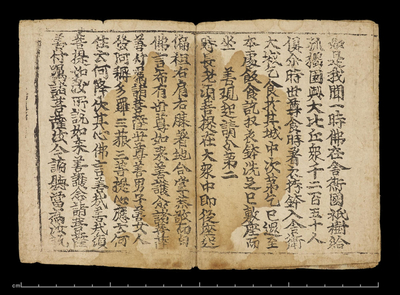 如是我聞一時佛在舍衛國祇樹給
孤獨園與大比丘眾千二百五十人
俱尒時世尊食時著衣持鉢入舍衛
大城乞食於其城中次第乞已還至
本處飯食訖收衣鉢洗足已敷座而
坐 善現起請分第二
時長老須菩提在大眾中即從座起
偏袒右肩右膝著地合掌恭敬而白
佛言希有世尊如來善護念諸菩薩
善付囑諸菩薩世尊善男子善女人
發阿耨多羅三藐三菩提心應云何
住云何降伏其心佛言善哉善哉須
菩提如汝所說如來善護念諸菩薩
善付囑諸菩薩汝今諦聽當為汝說
cm